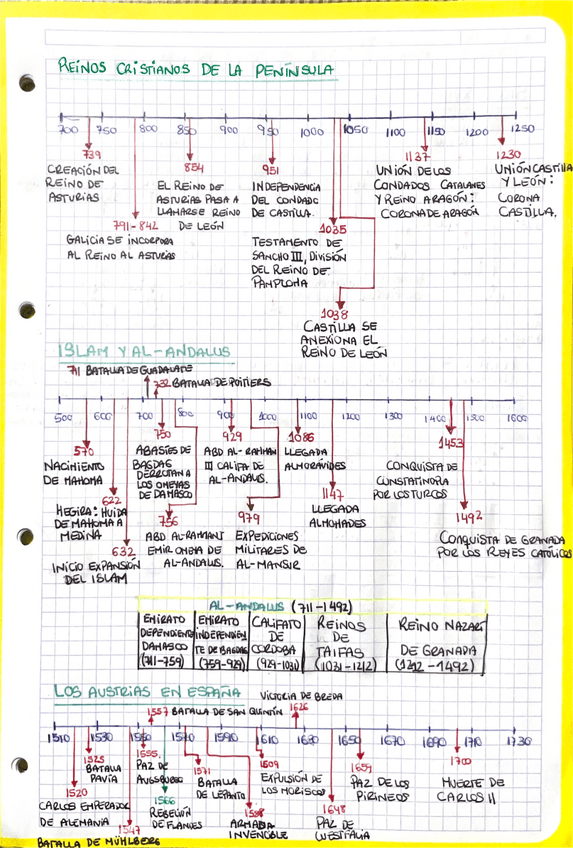 REINOS CRISTIANOS DE LA PENÍNSULA
700 750 800 850 900 950 1000 1050 1100 1150 1200 1250
739
CREACIÓN DEL
REINO DE
ASTURIAS
791-842
GALICIA SE INCORPORA
AL REINO AL ASTURIAS
854
EL REINO DE
ASTURIAS PASA A
LLAMARSE REINO
DE LEÓN
951
INDEPENDENCIA
DEL CONDADO
DE CASTILLA.
1035
TESTAMENTO DE
SANCHO III, DIVISIÓN
DEL REINO DE
PAMPLONA
1038
CASTILLA SE
ANEXIONA EL
REINO DE LEÓN
1137
UNIÓN DE LOS
CONDADOS CATALANES
Y REINO ARAGÓN:
CORONA DE ARAGÓN
1230
UNIÓN CASTILLA
Y LEÓN:
CORONA
CASTILLA.
ISLAM Y AL-ANDALUS
711 BATALLA DE GUADALETE
732 BATALLA DE POITIERS
500 600 700 800 900 1000 1100 1200 1300 1400 1500 1600
570
NACIMIENTO
DE MAHOMA
622
HEGIRA: HUIDA
DE MAHOMA A
MEDINA
632
INICIO EXPANSIÓN
DEL ISLAM
750
ABASIES DE
BAGDAG
DERROTAN A
LOS OMEYAS
DE DAMASCO
756
ABD AL-RAHMAN I
EMIR OMEYA DE
AL-ANDALUS.
929
ABD AL-RAHMAN
III CALIFA DE
AL-ANDALUS.
979
EXPEDICIONES
MILITARES DE
AL-MANSIR
1086
LLEGADA
ALMORÁVIDES
1147
LLEGADA
ALMOHADES
1453
CONQUISTA DE
CONSTATINOPLA
POR LOS TURCOS
1492
CONQUISTA DE GRANADA
POR LOS REYES CATÓLICOS
AL-ANDALUS (711-1492)
EMIRATO
DEPENDIENTE
DAMASCO
(711-759)
EMIRATO
INDEPENDIEN
TE DE BAGDAG
(759-929)
CALIFATO
DE
CORDOBA
(929-1031)
REINOS
DE
TAIFAS
(1031-1212)
REINO NAZARÍ
DE GRANADA
(1212-1492)
LOS AUSTRIAS EN ESPAÑA
1557 BATALLA DE SAN QUINTÍN
VICTORIA DE BREDA
1626
1510 1530 1550 1570 1590 1610 1630 1650 1670 1690 1710 1730
1520
CARLOS EMPERADOR
DE ALEMANIA
1525
BATALLA
PAVÍA
1547
BATALLA DE MÜHLBERG
1555
PAZ DE
AUGSBURGO
1566
REBELIÓN
DE FLANDES
1571
BATALLA
DE LEPANTO
1588
ARMADA
INVENCIBLE
1609
EXPULSIÓN DE
LOS MORISCOS
1648
PAZ DE
WESTFALIA
1659
PAZ DE LOS
PIRINEOS
1700
MUERTE DE
CARLOS II